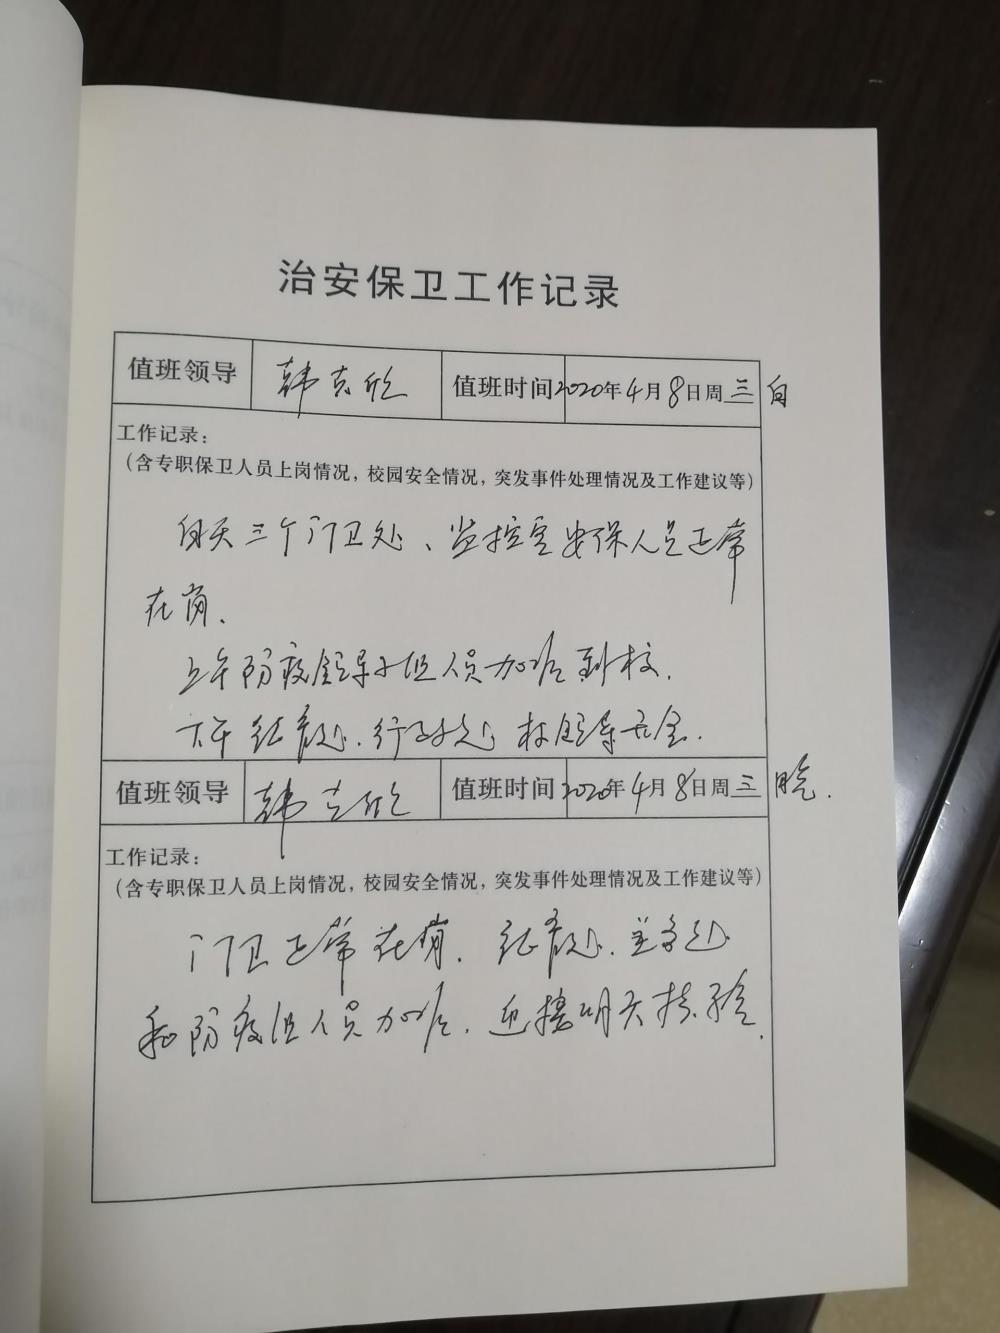 治安保卫工作记录
值班领导 韩克欣 值班时间 2020年4月8日周三 白
工作记录：
（含专职保卫人员上岗情况，校园安全情况，突发事件处理情况及工作建议等）
白天三个门卫处、监控室安保人员正常
在岗.
上午防疫领导小组人员加班到校.
下午德育处.行政处 校领导开会.
值班领导 韩克欣 值班时间 2020年4月8日周三 晚.
工作记录：
（含专职保卫人员上岗情况，校园安全情况，突发事件处理情况及工作建议等）
门卫正常在岗. 德育处.
和防疫组人员加班. 迎接明天检验.